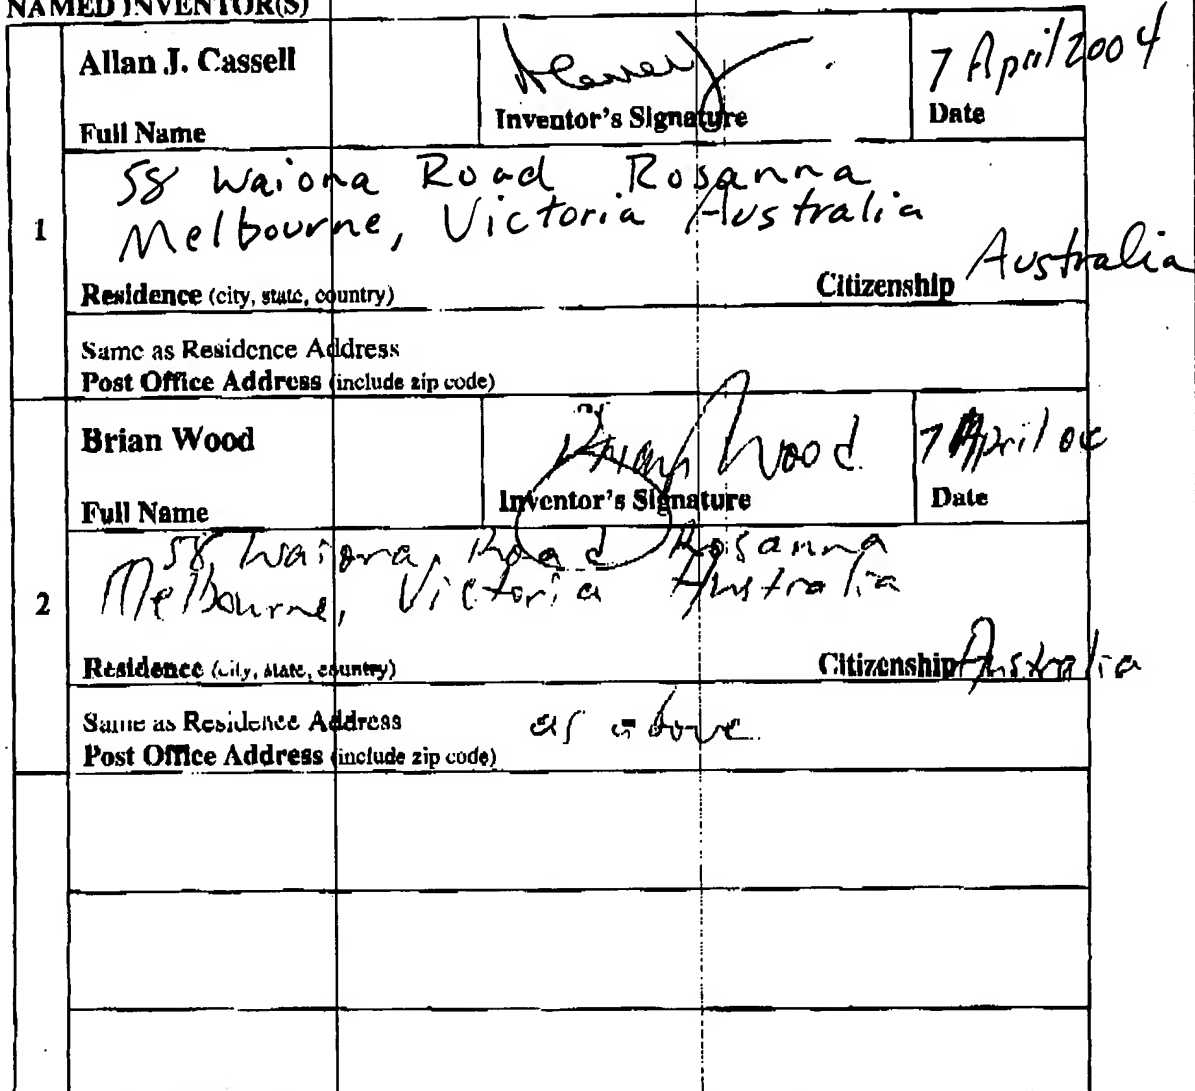 NAMED INVENTOR(S)
Allan J. Cassell
7 April 2004
Full Name
Inventor's Signature
Date
1
58 Waiona Road Rosanna
Melbourne, Victoria Australia
Residence (city, state, country)
Citizenship Australia
Same as Residence Address
Post Office Address (include zip code)
Brian Wood
Brian Wood
7 April 04
Full Name
Inventor's Signature
Date
2
58, Waiona, Road Rosanna
Melbourne, Victoria Australia
Residence (city, state, country)
Citizenship Australia
Same as Residence Address as above
Post Office Address (include zip code)